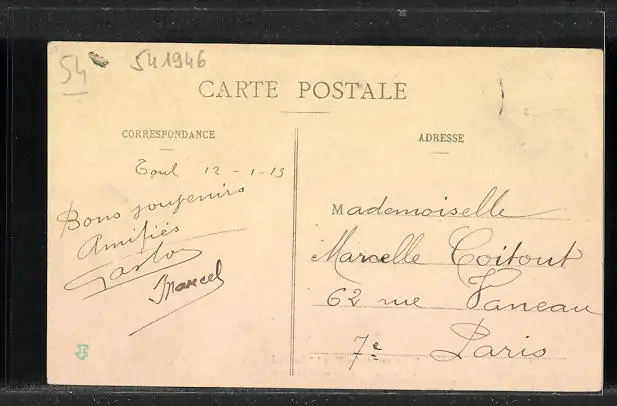 54
541946
CARTE POSTALE
CORRESPONDANCE
Toul 12-1-13
Bons souvenirs
Amitiés
Gaston
Marcel
ADRESSE
Mademoiselle
Marcelle Coitout
62 rue Vaneau
7e Paris